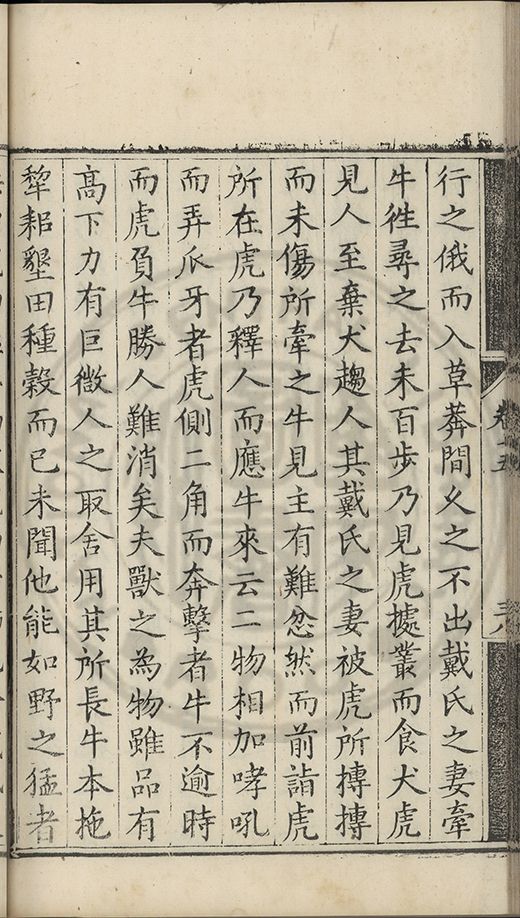 行之俄而入草莽間久之不出戴氏之妻牽
牛徃尋之去未百步乃見虎據叢而食犬虎
見人至棄犬趨人其戴氏之妻被虎所摶摶
而未傷所牽之牛見主有難忿然而前詣虎
所在虎乃釋人而應牛來云二物相加哮吼
而弄爪牙者虎側二角而奔擊者牛不逾時
而虎負牛勝人難消矣夫獸之為物雖品有
高下力有巨微人之取舍用其所長牛本拖
犂耜墾田種穀而已未聞他能如野之猛者
卷十五
三八